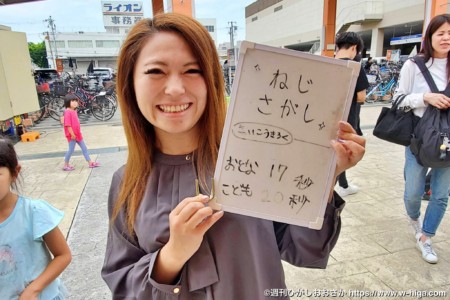 ライオン
事務器
"ねじ
さがし"
さいこうきろく
おとな 17 秒
こども 20 秒
©週刊ひがしおおさか https://www.w-higa.com